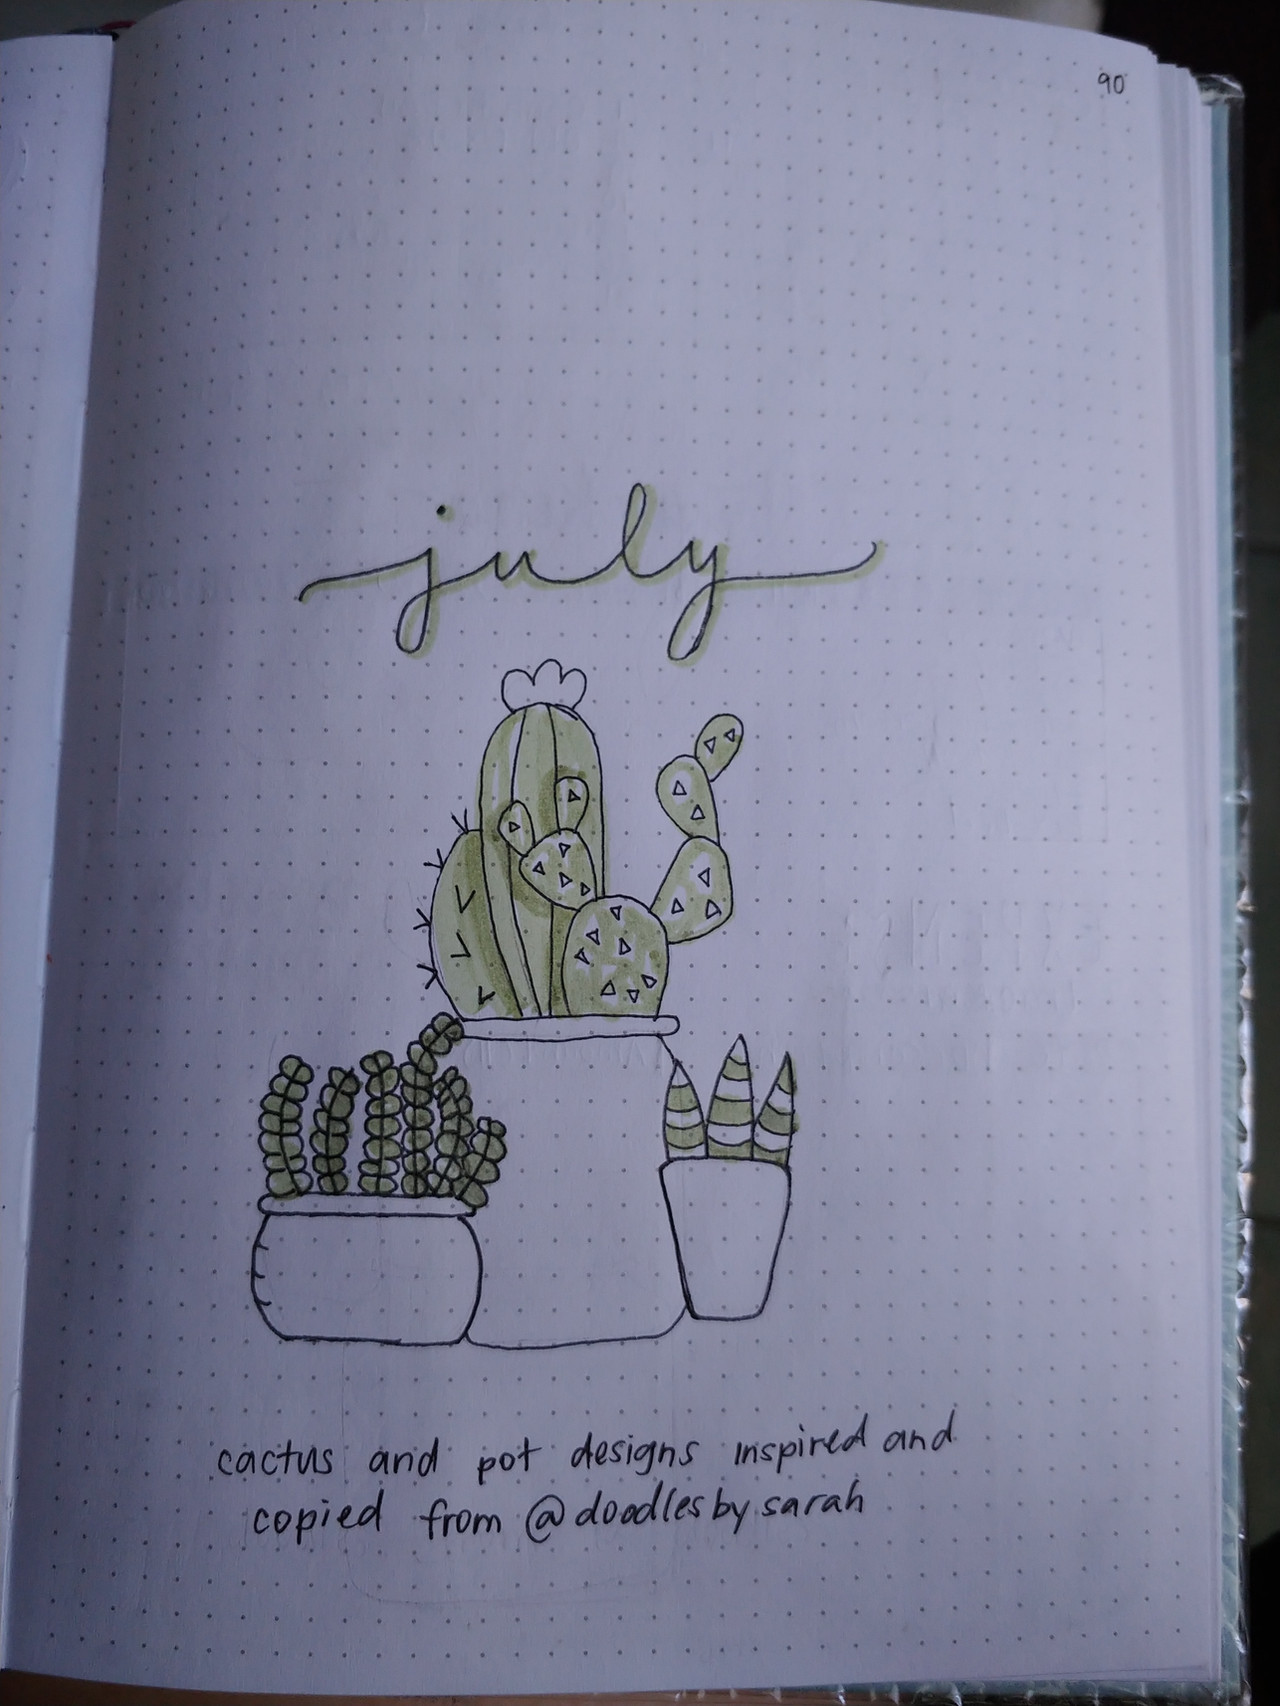 90
july
cactus and pot designs inspired and
copied from @doodlesbysarah